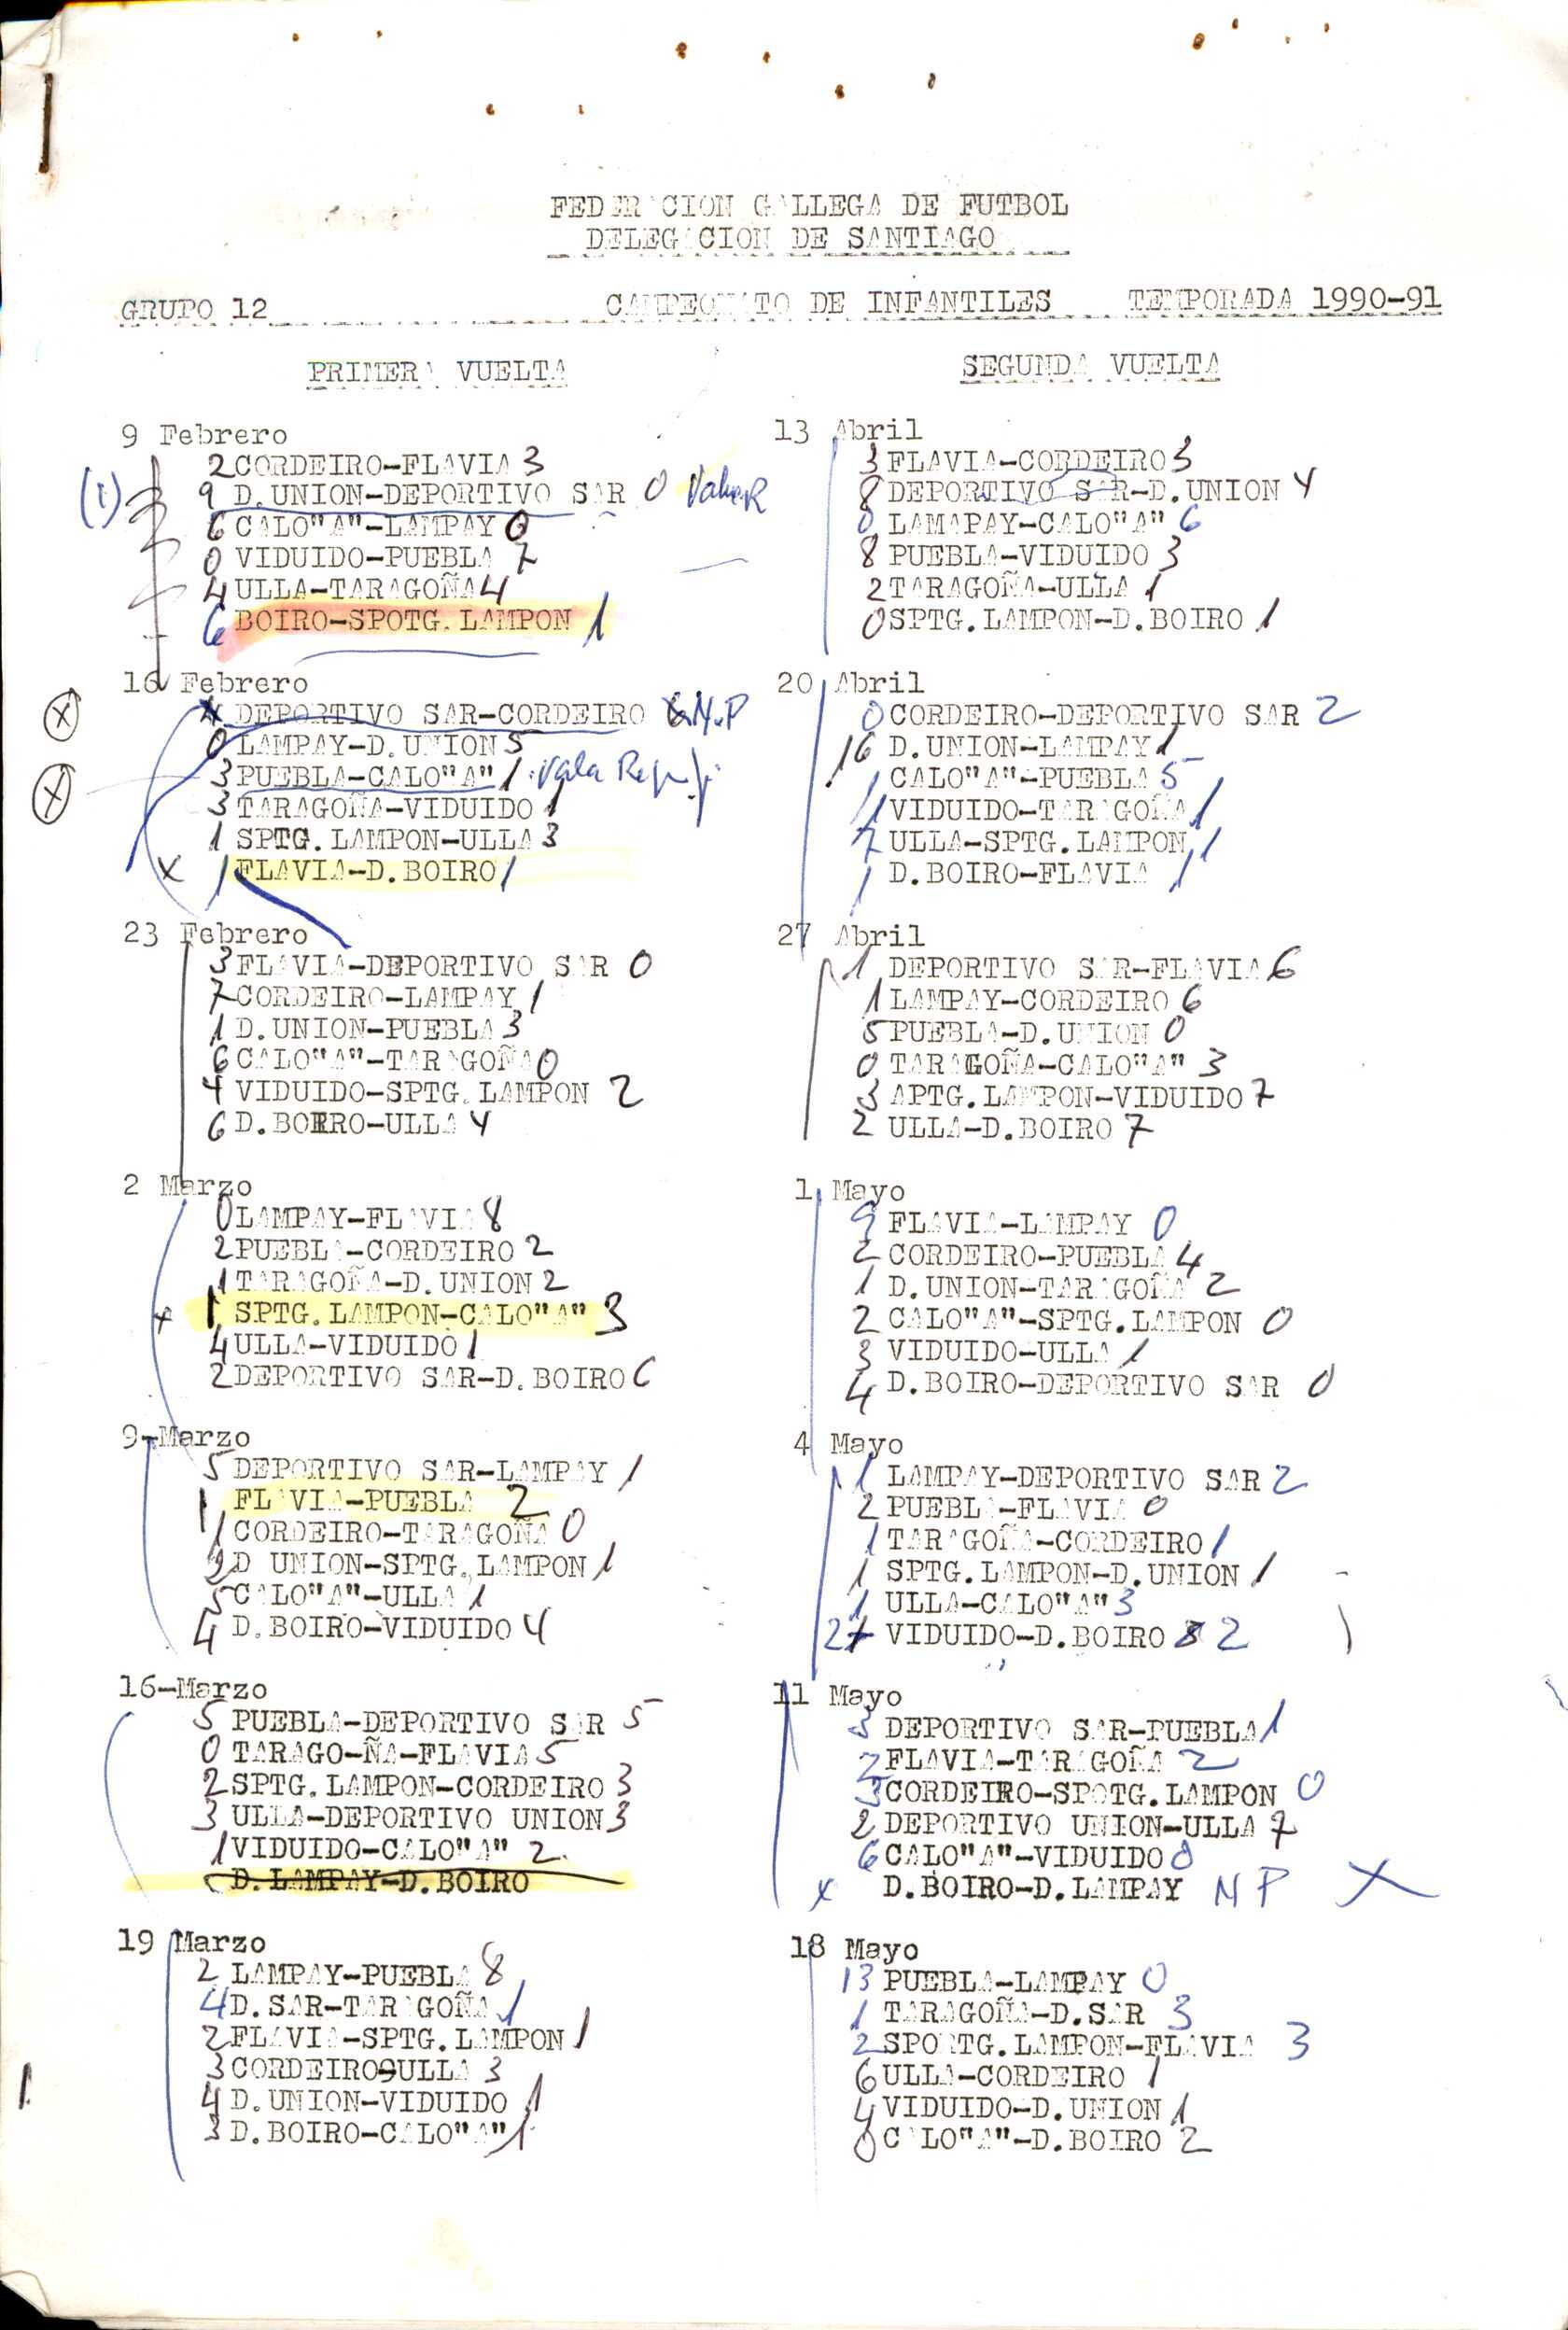 FEDERACION GALLEGA DE FUTBOL
DELEGACION DE SANTIAGO
GRUPO 12 CAMPEONATO DE INFANTILES TEMPORADA 1990-91
PRIMERA VUELTA
9 Febrero
2 CORDEIRO-FLAVIA 3
(1) 9 D.UNION-DEPORTIVO SAR 0
6 CALO"A"-LAMPAY 0
0 VIDUIDO-PUEBLA 7
4 ULLA-TARAGOÑA 4
6 BOIRO-SPOTG.LAMPON 1
16 Febrero
X DEPORTIVO SAR-CORDEIRO N.P
0 LAMPAY-D.UNION 5
X 3 PUEBLA-CALO"A" 1
3 TARAGOÑA-VIDUIDO 1
1 SPTG.LAMPON-ULLA 3
X 1 FLAVIA-D.BOIRO 1
23 Febrero
3 FLAVIA-DEPORTIVO SAR 0
7 CORDEIRO-LAMPAY 1
1 D.UNION-PUEBLA 3
6 CALO"A"-TARAGOÑA 0
4 VIDUIDO-SPTG.LAMPON 2
6 D.BOIRO-ULLA 4
2 Marzo
0 LAMPAY-FLAVIA 8
2 PUEBLA-CORDEIRO 2
1 TARAGOÑA-D.UNION 2
x 1 SPTG.LAMPON-CALO"A" 3
4 ULLA-VIDUIDO 1
2 DEPORTIVO SAR-D.BOIRO 6
9-Marzo
5 DEPORTIVO SAR-LAMPAY 1
1 FLAVIA-PUEBLA 2
1 CORDEIRO-TARAGOÑA 0
D UNION-SPTG.LAMPON 1
5 CALO"A"-ULLA 1
4 D.BOIRO-VIDUIDO 4
16-Marzo
5 PUEBLA-DEPORTIVO SAR 5
0 TARAGO-ÑA-FLAVIA 5
2 SPTG.LAMPON-CORDEIRO 3
3 ULLA-DEPORTIVO UNION 3
1 VIDUIDO-CALO"A" 2
D.LAMPAY-D.BOIRO
19 Marzo
2 LAMPAY-PUEBLA 8
4 D.SAR-TARAGOÑA 1
2 FLAVIA-SPTG.LAMPON 1
3 CORDEIRO-ULLA 3
4 D.UNION-VIDUIDO 1
3 D.BOIRO-CALO"A" 1
SEGUNDA VUELTA
13 Abril
3 FLAVIA-CORDEIRO 3
8 DEPORTIVO SAR-D.UNION 4
0 LAMAPAY-CALO"A" 6
8 PUEBLA-VIDUIDO 3
2 TARAGOÑA-ULLA 1
0 SPTG.LAMPON-D.BOIRO 1
20 Abril
0 CORDEIRO-DEPORTIVO SAR 2
16 D.UNION-LAMPAY 1
1 CALO"A"-PUEBLA 5
VIDUIDO-TARAGOÑA 1
7 ULLA-SPTG.LAMPON 1
1 D.BOIRO-FLAVIA 1
27 Abril
1 DEPORTIVO SAR-FLAVIA 6
1 LAMPAY-CORDEIRO 6
5 PUEBLA-D.UNION 0
0 TARAGOÑA-CALO"A" 3
3 APTG.LAMPON-VIDUIDO 7
2 ULLA-D.BOIRO 7
1 Mayo
9 FLAVIA-LAMPAY 0
2 CORDEIRO-PUEBLA 4
1 D.UNION-TARAGOÑA 2
2 CALO"A"-SPTG.LAMPON 0
3 VIDUIDO-ULLA 1
4 D.BOIRO-DEPORTIVO SAR 0
4 Mayo
1 LAMPAY-DEPORTIVO SAR 2
2 PUEBLA-FLAVIA 0
1 TARAGOÑA-CORDEIRO 1
1 SPTG.LAMPON-D.UNION 1
1 ULLA-CALO"A" 3
2 VIDUIDO-D.BOIRO 2
11 Mayo
3 DEPORTIVO SAR-PUEBLA 1
2 FLAVIA-TARAGOÑA 2
3 CORDEIRO-SPOTG.LAMPON 0
2 DEPORTIVO UNION-ULLA 7
6 CALO"A"-VIDUIDO 0
x D.BOIRO-D.LAMPAY NP X
18 Mayo
13 PUEBLA-LAMPAY 0
1 TARAGOÑA-D.SAR 3
2 SPORTG.LAMPON-FLAVIA 3
6 ULLA-CORDEIRO 1
4 VIDUIDO-D.UNION 1
0 CALO"A"-D.BOIRO 2